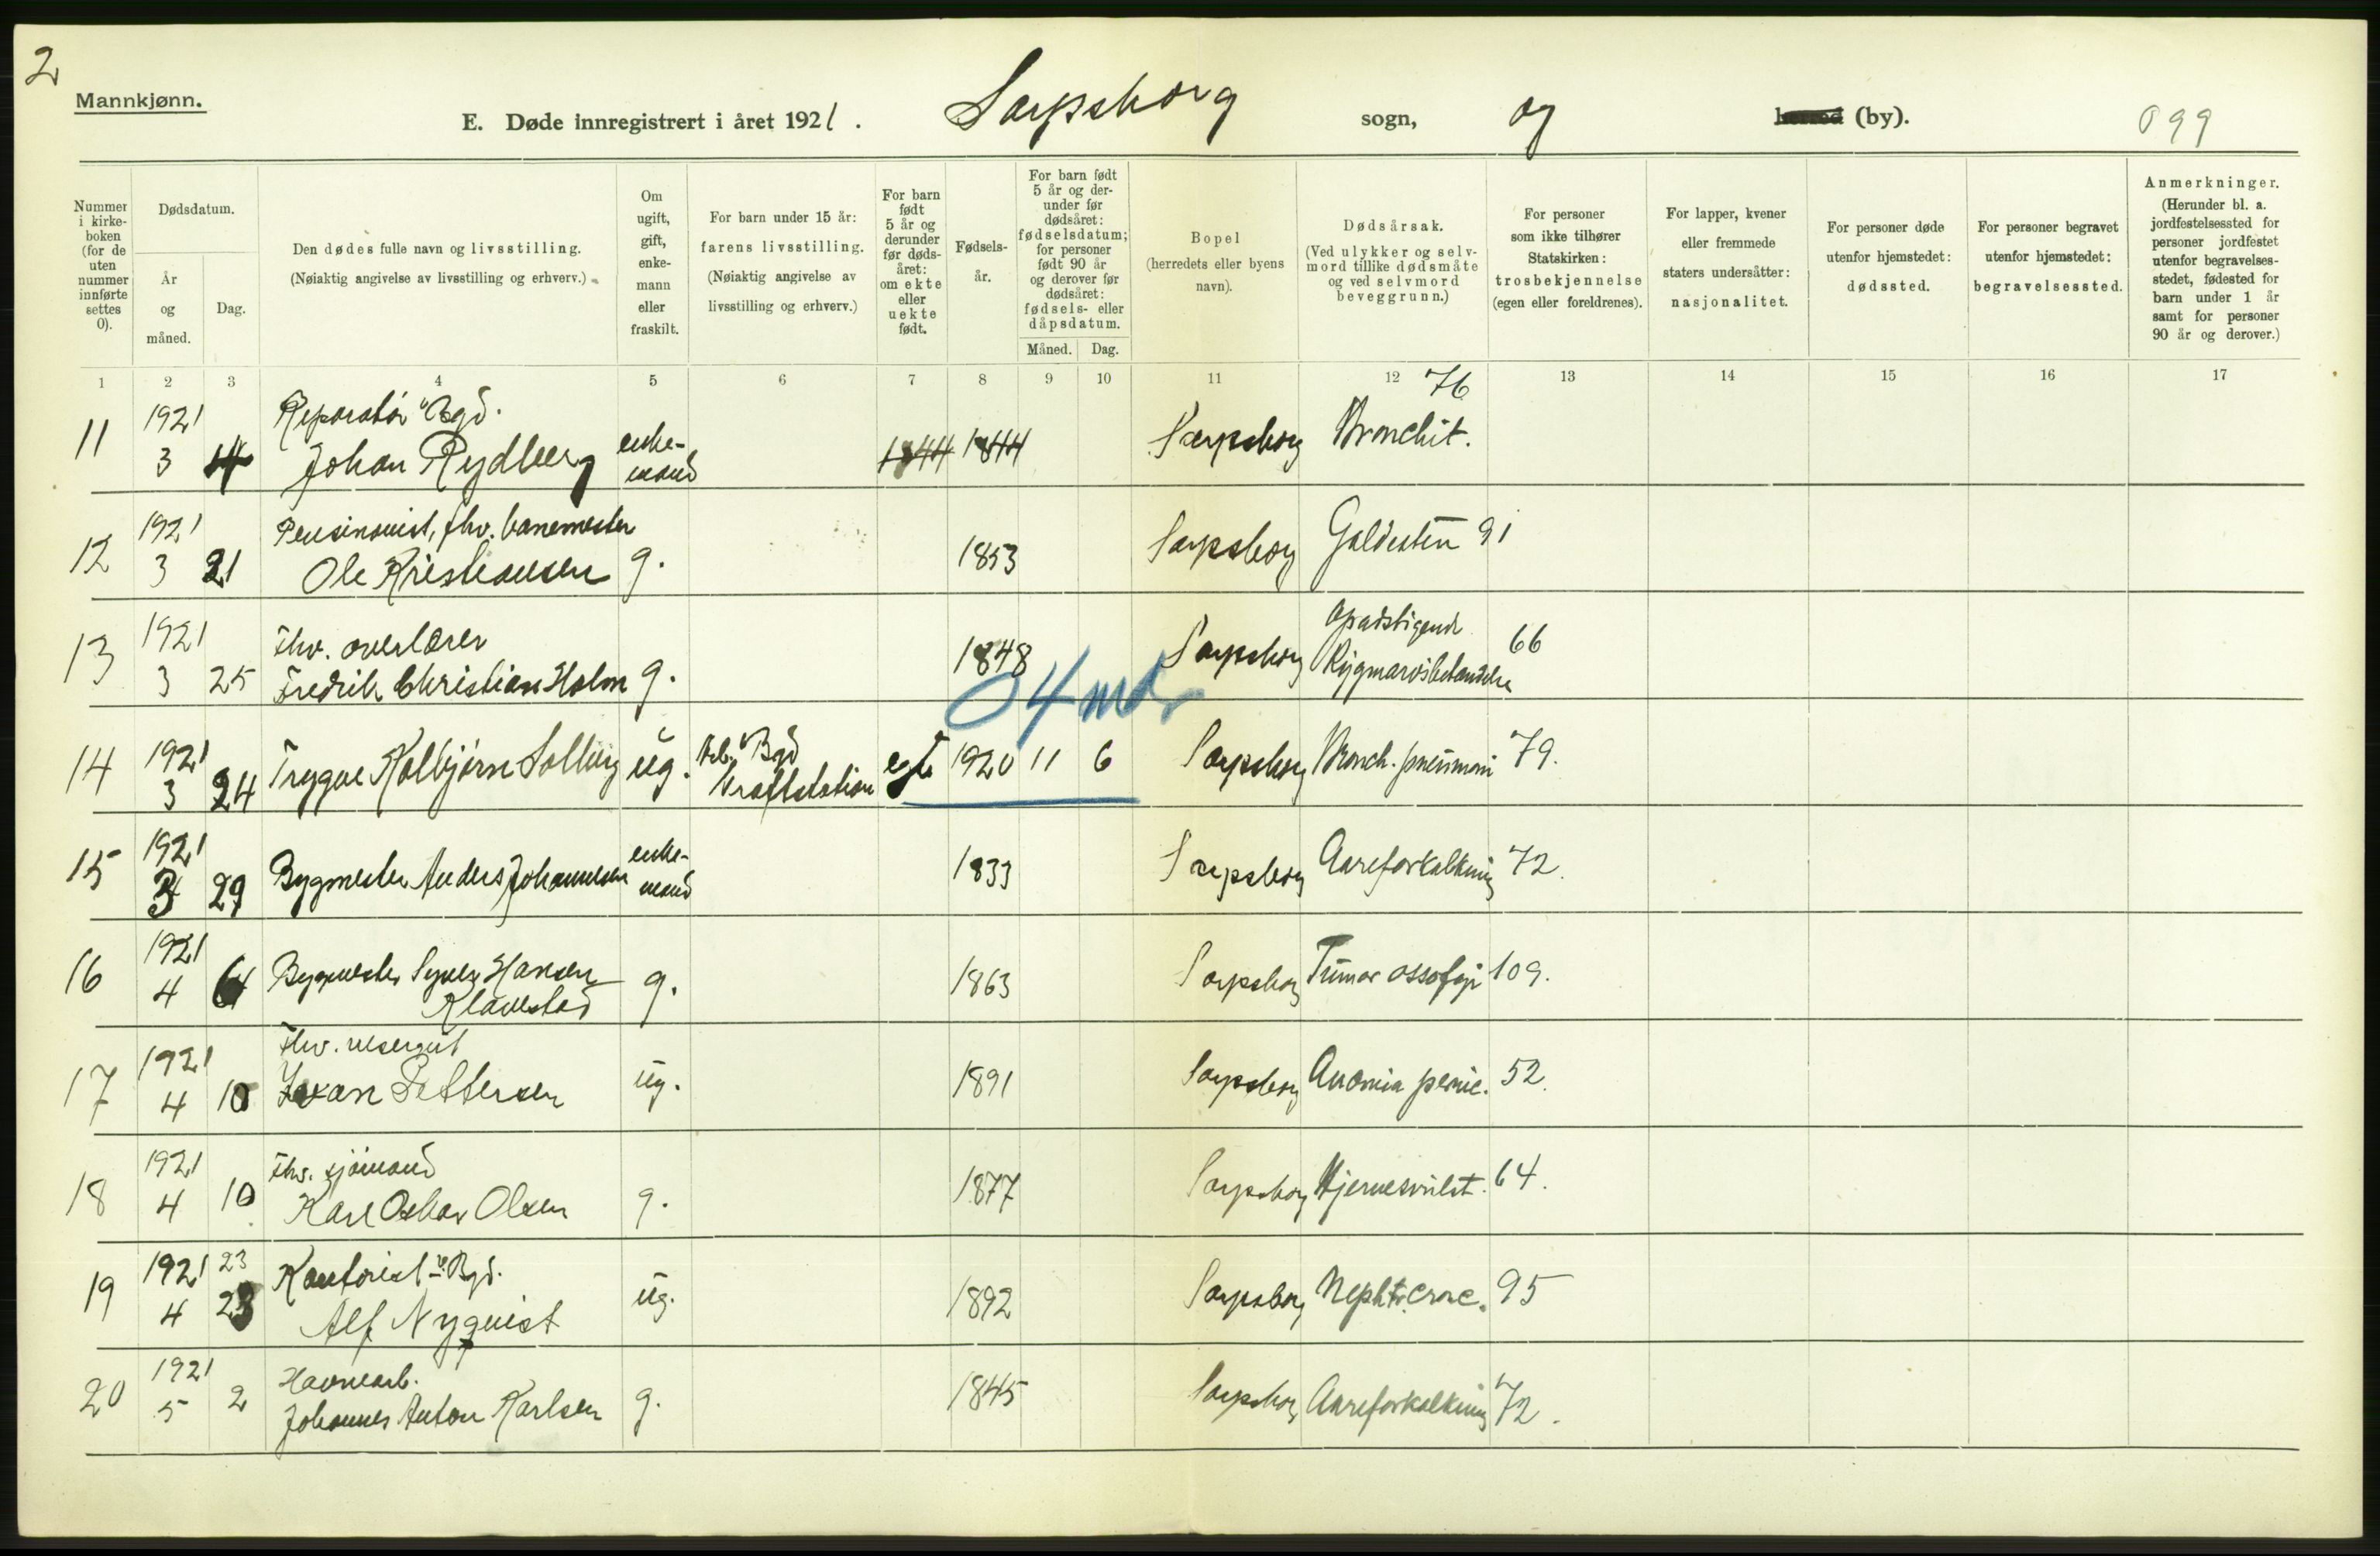 2
Mannkjønn.
E. Døde innregistrert i året 1921. Sarpsborg sogn, og herred (by). 099
Nummer i kirkeboken (for de uten nummer innførte settes 0).
Dødsdatum.
År og måned.
Dag.
Den dødes fulle navn og livsstilling.
(Nøiaktig angivelse av livsstilling og erhverv.)
Om ugift, gift, enkemann eller fraskilt.
For barn under 15 år:
farens livsstilling.
(Nøiaktig angivelse av livsstilling og erhverv.)
For barn født 5 år og derunder før dødsåret: om ekte eller uekte født.
Fødselsår.
For barn født 5 år og derunder før dødsåret: fødselsdatum; for personer født 90 år og derover før dødsåret: fødsels- eller dåpsdatum.
Måned. Dag.
Bopel
(herredets eller byens navn).
Dødsårsak.
(Ved ulykker og selvmord tillike dødsmåte og ved selvmord beveggrunn.)
For personer som ikke tilhører Statskirken:
trosbekjennelse
(egen eller foreldrenes).
For lapper, kvener eller fremmede staters undersåtter:
nasjonalitet.
For personer døde utenfor hjemstedet:
dødssted.
For personer begravet utenfor hjemstedet:
begravelsessted.
Anmerkninger.
(Herunder bl. a. jordfestelsessted for personer jordfestet utenfor begravelsesstedet, fødested for barn under 1 år samt for personer 90 år og derover.)
1 2 3 4 5 6 7 8 9 10 11 12 13 14 15 16 17
76
1921 Reparatør v Bgd.
11 3 14 Johan Rydberg enkemand 1844 1844 Sarpsborg Bronchit.
1921 Pensionist, fhv. banemester
12 3 21 Ole Kristiansen g. 1853 Sarpsborg Galdesten 91
1921 Fhv. overlærer Opadstigende
13 3 25 Fredrik Christian Holm g. 1848 Sarpsborg Rygmarvsbetændelse 66
04 mdr
1921 Arb. v Bgd
14 3 24 Trygve Kolbjørn Solberg ug. Kraftstation egte 1920 11 6 Sarpsborg Bronch. pneumoni 79.
1921
15 3 29 Bygmester Anders Johannesen enkemand 1833 Sarpsborg Aareforkalkning 72.
1921
16 4 Bygmester Syver Hansen g. 1863 Sarpsborg Tumor 109.
Klavestad
1921 Fhv. visergut
17 4 10 Ivan Pettersen ug. 1891 Sarpsborg Anæmia pernic. 52.
1921 Fhv. sjömand
18 4 10 Karl Oskar Olsen g. 1877 Sarpsborg Hjernesvulst. 64.
1921 23 Kontorist v. Bgd.
19 4 23 Alf Nyquist ug. 1892 Sarpsborg Nephtr. cron. 95
1921 Havnearb.
20 5 2 Johannes Anton Karlsen g. 1845 Sarpsborg Aareforkalkning 72.